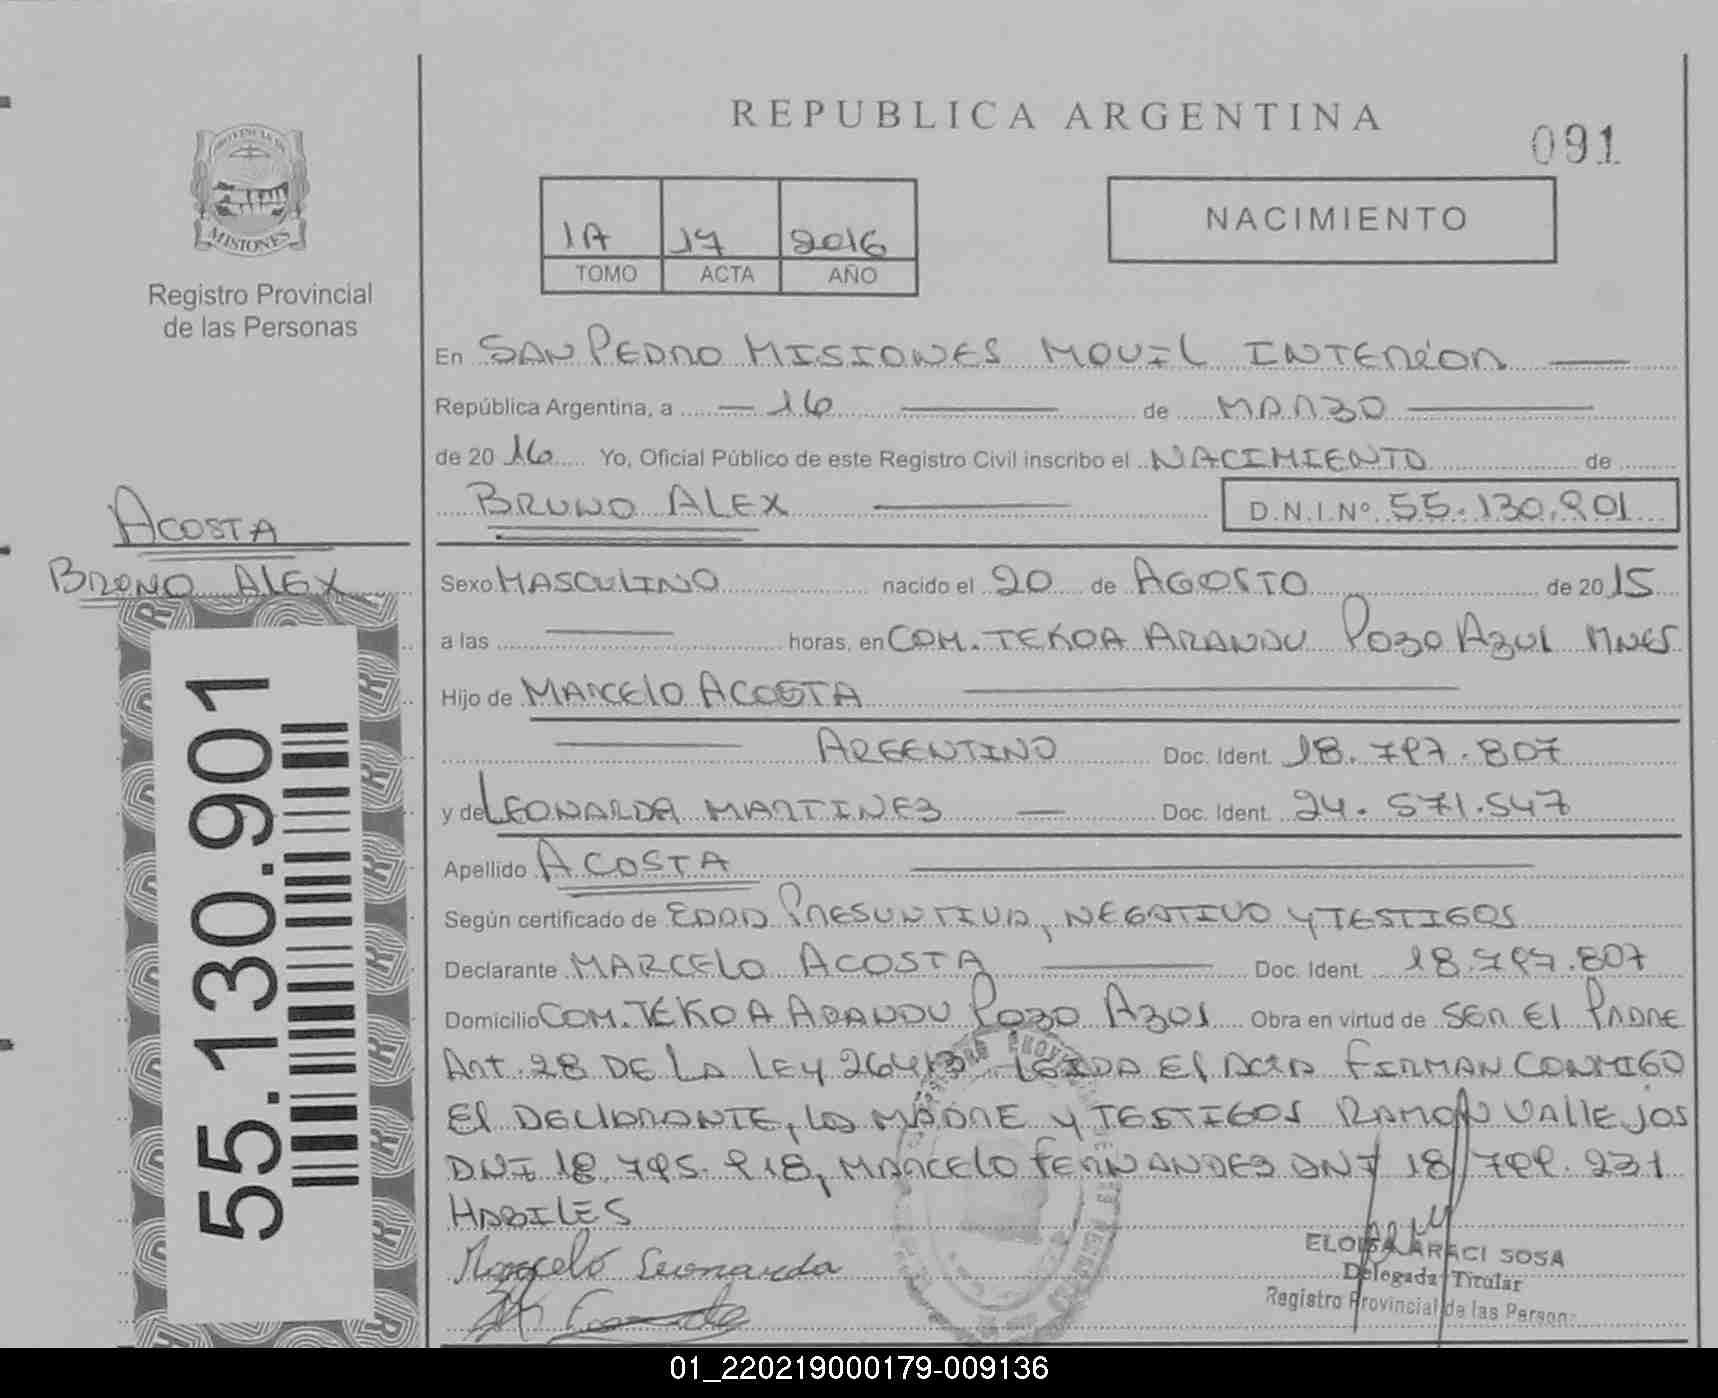 REPUBLICA ARGENTINA
091
PROVINCIA DE
MISIONES
Registro Provincial
de las Personas
1A 17 2016
TOMO ACTA AÑO
NACIMIENTO
En SAN PEDRO MISIONES MOVIL INTERIOR
República Argentina, a 16 de MARZO
de 2016 Yo, Oficial Público de este Registro Civil inscribo el NACIMIENTO de
BRUNO ALEX D.N.I.Nº 55.130.901
ACOSTA
BRUNO ALEX
55.130.901
Sexo MASCULINO nacido el 20 de AGOSTO de 2015
a las horas, en COM. TEKOA ARANDU POZO AZUL MNES
Hijo de MARCELO ACOSTA
ARGENTINO Doc. Ident. 18.797.807
y de LEONARDA MARTINEZ Doc. Ident. 24.571.547
Apellido ACOSTA
Según certificado de EDAD PRESUNTIVA, NEGATIVO Y TESTIGOS
Declarante MARCELO ACOSTA Doc. Ident. 18.797.807
Domicilio COM. TEKOA ARANDU POZO AZUL Obra en virtud de SER EL PADRE
ART. 28 DE LA LEY 26413 LEIDA EL ACTA FIRMAN CONMIGO
EL DECLARANTE, LA MADRE Y TESTIGOS RAMON VALLEJOS
DNI 18.795.918, MARCELO FERNANDEZ DNI 18.799.231
HABILES
Marcelo Leonarda
ELOISA ARACI SOSA
Delegada Titular
Registro Provincial de las Person
01_220219000179-009136